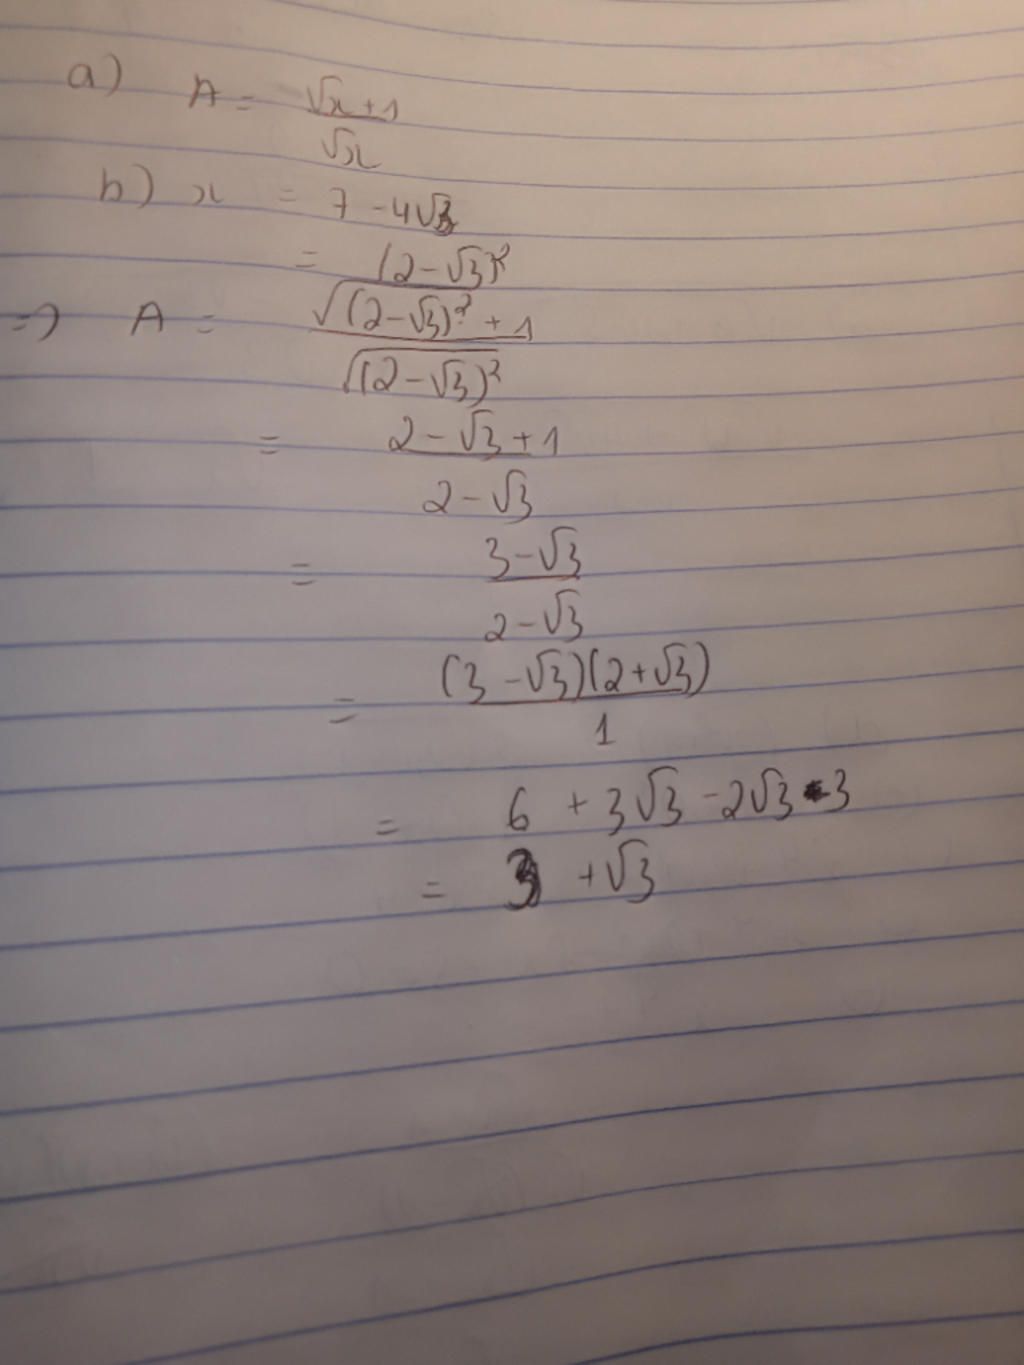 a) A = √x + 1 / √x
b) x = 7 - 4√3
= (2 - √3)²
=> A = √(2 - √3)² + 1 / √(2 - √3)²
= 2 - √3 + 1 / 2 - √3
= 3 - √3 / 2 - √3
= (3 - √3)(2 + √3) / 1
= 6 + 3√3 - 2√3 - 3
= 3 + √3